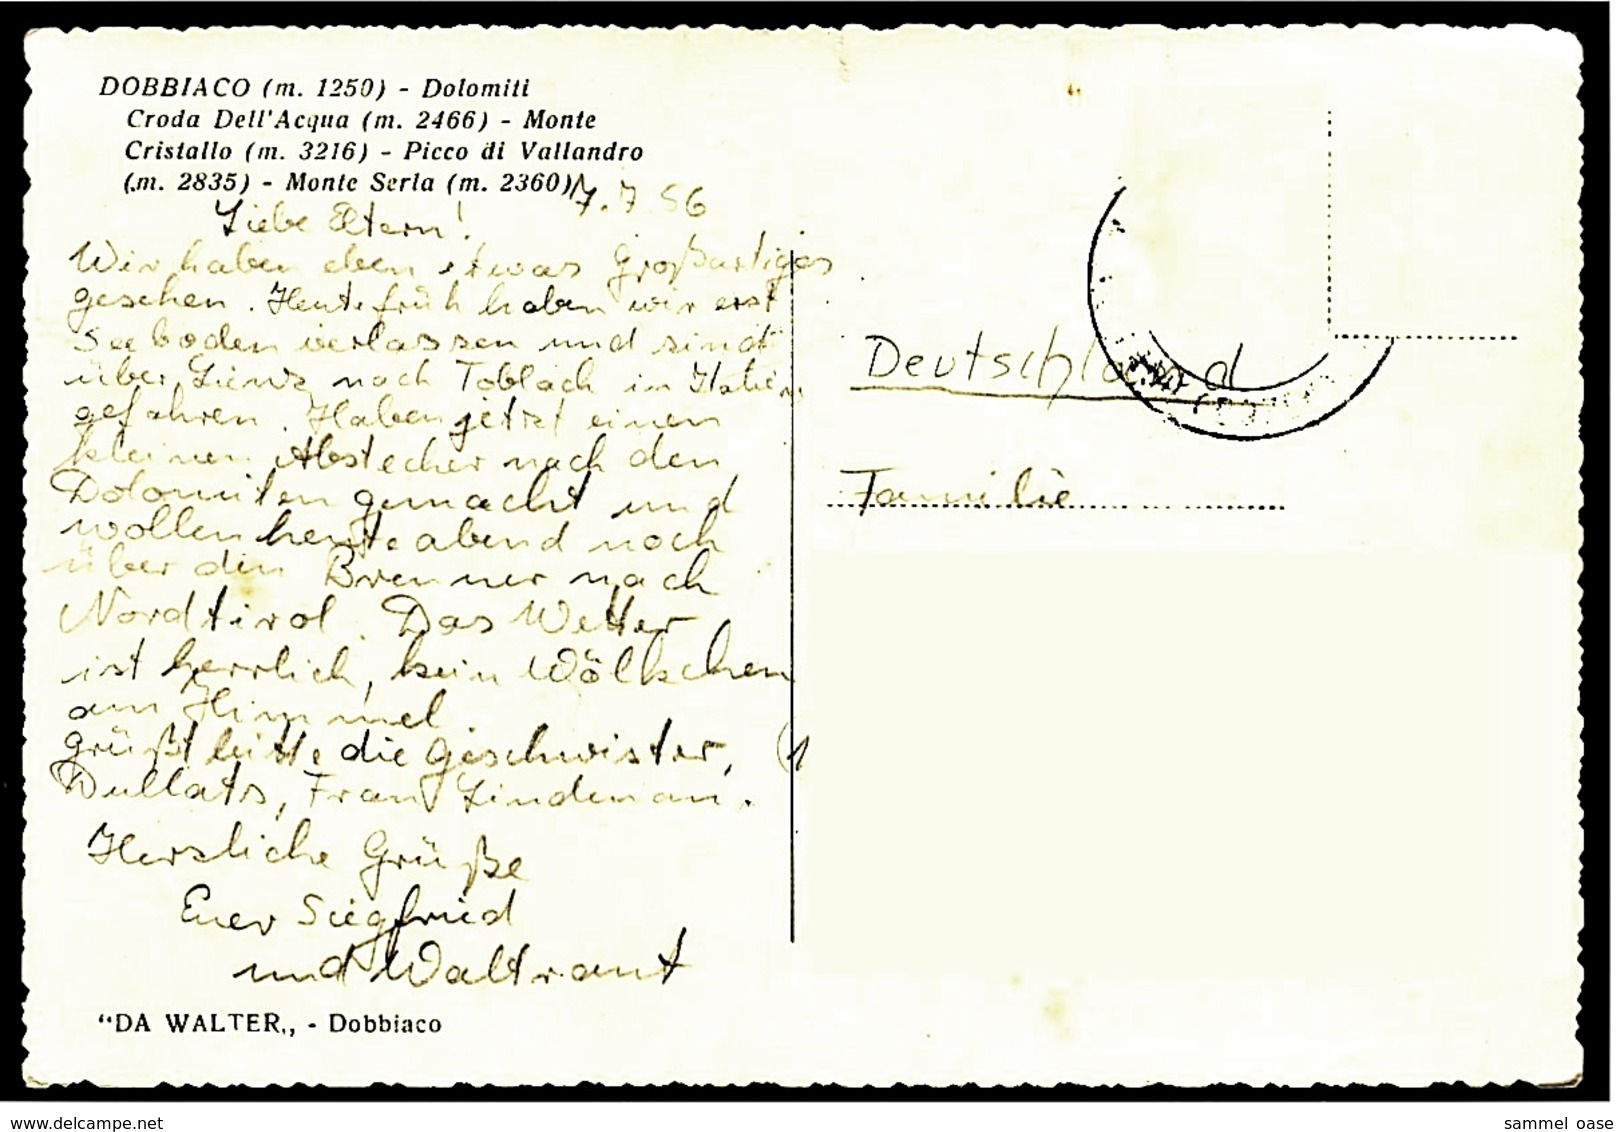 DOBBIACO (m. 1250) - Dolomiti
Croda Dell'Acqua (m. 2466) - Monte
Cristallo (m. 3216) - Picco di Vallandro
(m. 2835) - Monte Serla (m. 2360)
7.7.56
Liebe Eltern!
Wir haben eben etwas Großartiges
gesehen. Heute früh haben wir erst
Seeboden verlassen und sind
über Lienz nach Toblach in Italien
gefahren. Haben jetzt einen
kleinen Abstecher nach den
Dolomiten gemacht und
wollen heute abend noch
über den Brenner nach
Nordtirol. Das Wetter
ist herrlich, kein Wölkchen
am Himmel.
Grüßt bitte die Geschwister,
Dullats, Frau Lindenau.
Herzliche Grüße
Euer Siegfried
und Waltraut
"DA WALTER„ - Dobbiaco
Deutschland
Familie
www.delcampe.net
sammel_oase